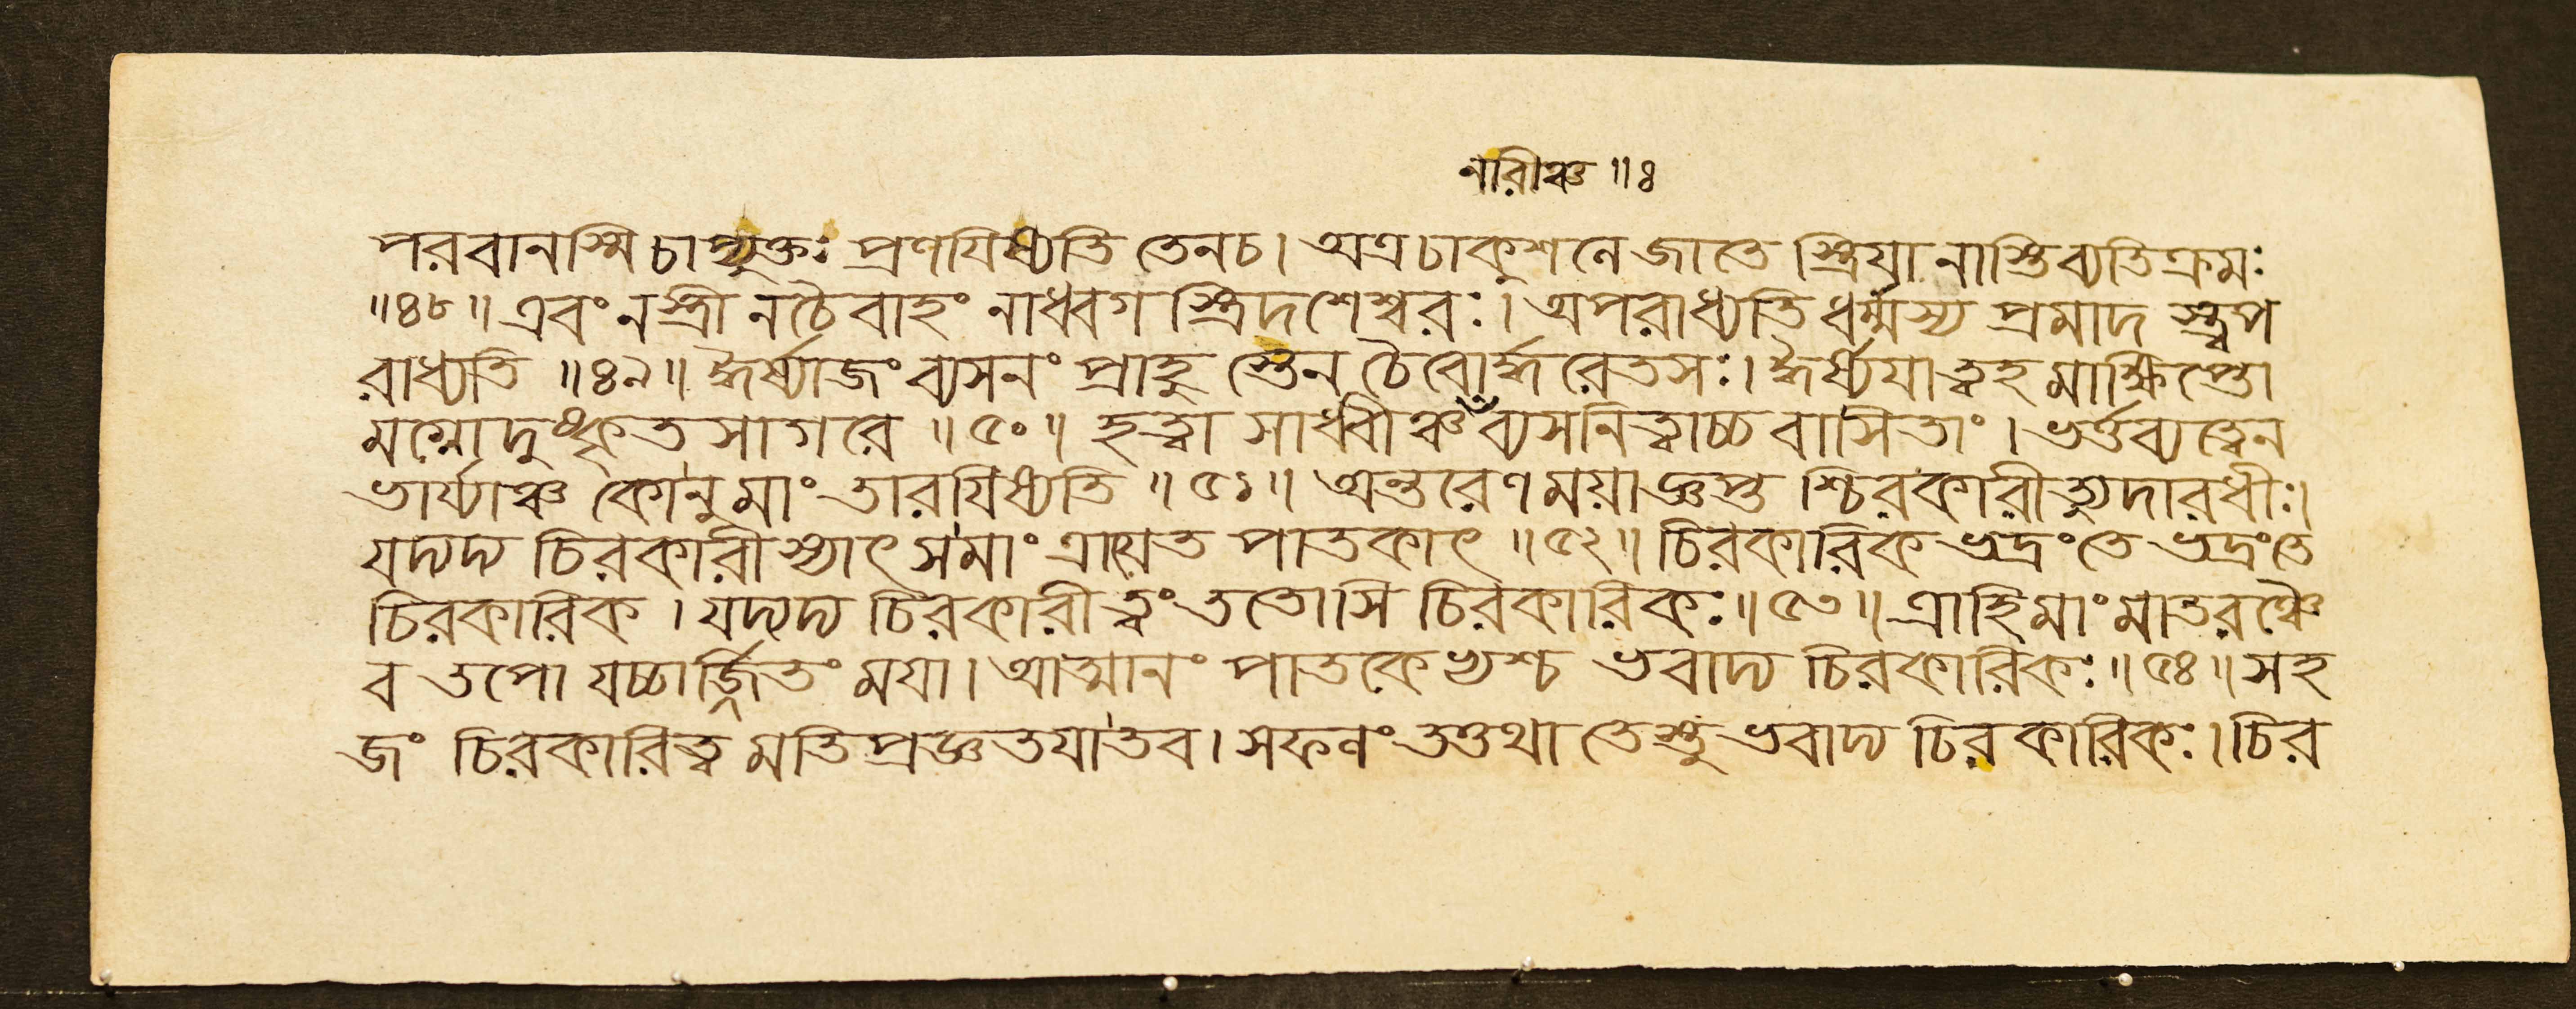 নারীঞ্চ ॥ঃ
পরবানস্মি চাপ্যুক্তঃ প্রণযিষ্যতি তেনচ। অত্রচাকুশনে জাতে স্ত্রিযা নাস্তিব্যতিক্রমঃ
॥৪৮॥ এবং নস্ত্রী নচৈবাহং নাধ্বগ স্ত্রিদশেশ্বরঃ। অপরাধ্যতি ধর্ম্মস্য প্রমাদ স্ত্বপ
রাধ্যতি ॥৪৯॥ র্ষ্যাজং ব্যসনং প্রাহু স্তেন চৈবোর্দ্ধরেতসঃ। র্ষ্যযাত্বহ মাক্ষিপ্তো
মগ্নোদুষ্কৃতসাগরে ॥৫০॥ হত্বা সাধ্বীঞ্চ ব্যসনিত্বাচ্চ বাসিতাং। ভর্ত্তব্যত্বেন
ভার্য্যাঞ্চ কোনুমাং তারযিষ্যতি ॥৫১॥ অন্তরেণ ময়াজ্ঞপ্ত শ্চিরকারীত্যুদারধীঃ।
যদ্যদ্য চিরকারীস্যাৎ সমাং ত্রায়েত পাতকাৎ ॥৫২॥ চিরকারিক ভদ্রংতে ভদ্রংতে
চিরকারিক। যদ্যদ্য চিরকারী ত্বং ততোসি চিরকারিকঃ ॥৫৩॥ ত্রাহিমাং মাতরঞ্চৈ
ব তপো যচ্চার্জ্জিতং মযা। আত্মানং পাতকেভ্যশ্চ ভবাদ্য চিরকারিকঃ ॥৫৪॥ সহ
জং চিরকারিত্ব মতিপ্রজ্ঞতযা তব। সফনং তত্তথা তেস্তু ভবাদ্য চিরকারিকঃ। চির